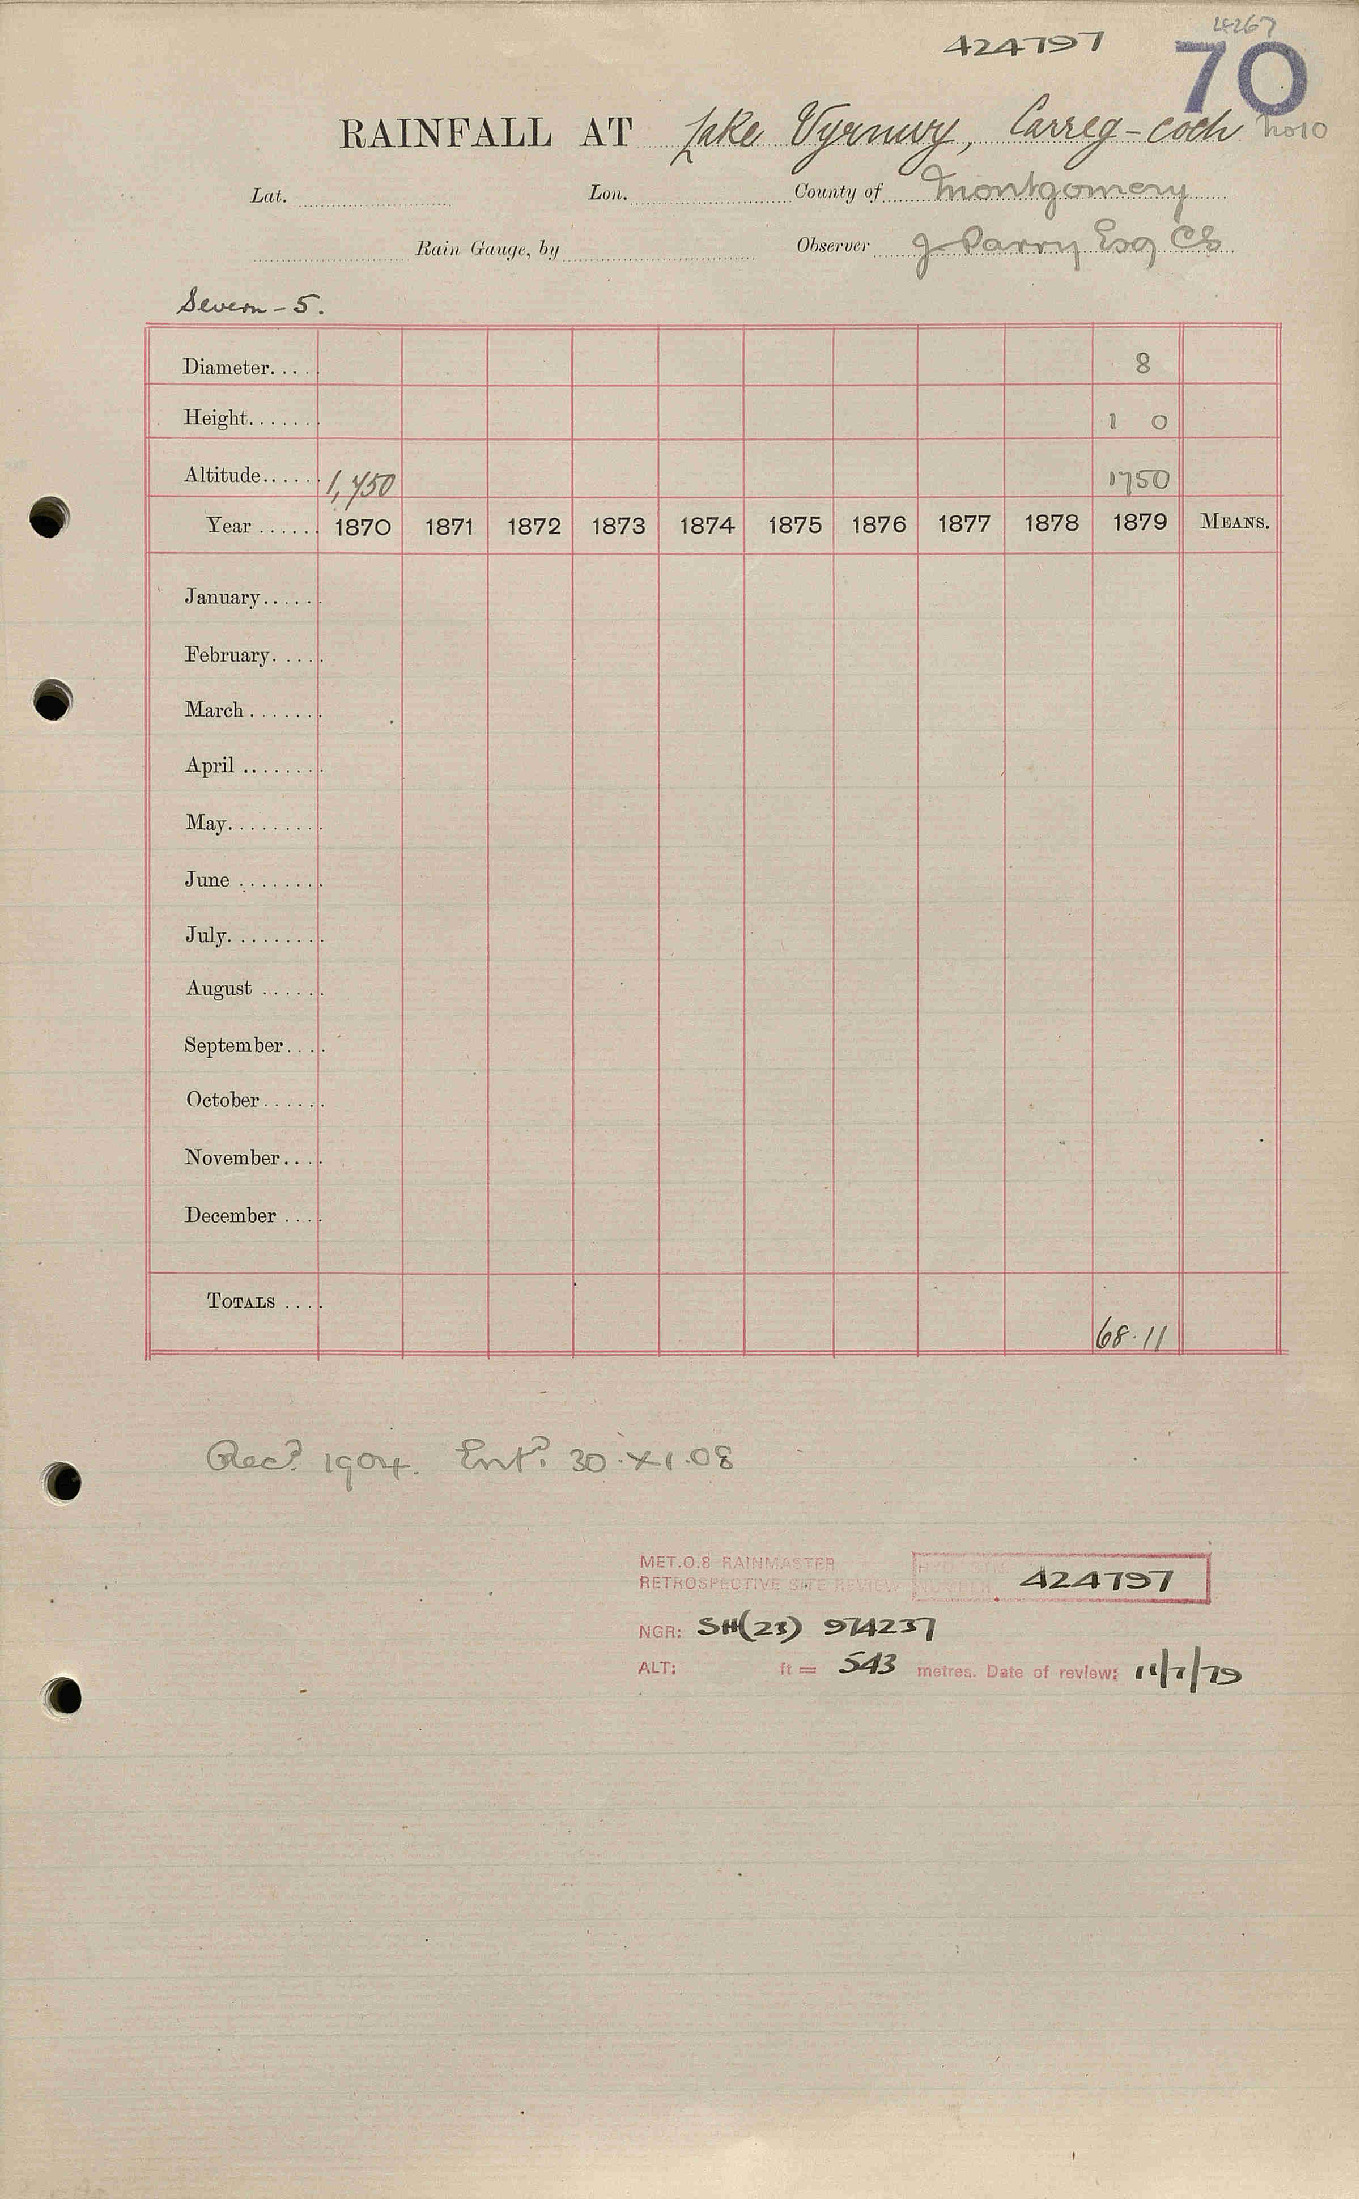 4267
424797 70
RAINFALL AT Lake Vyrnwy, Carreg-coch No 10
Lat. Lon. County of Montgomery
Rain Gauge, by Observer J Parry Esq CE
Severn - 5.
Diameter.... 8
Height....... 1 0
Altitude...... 1,750 1750
Year ...... 1870 1871 1872 1873 1874 1875 1876 1877 1878 1879 MEANS.
January......
February......
March.......
April ........
May.........
June ........
July.........
August ......
September....
October......
November....
December ....
TOTALS .... 68.11
Recd 1904. Entd 30.XI.08
MET.O.8 RAINMASTER
RETROSPECTIVE SITE REVIEW NUMBER 424797
NGR: SH(23) 974237
ALT: ft = 543 metres. Date of review: 11/7/79